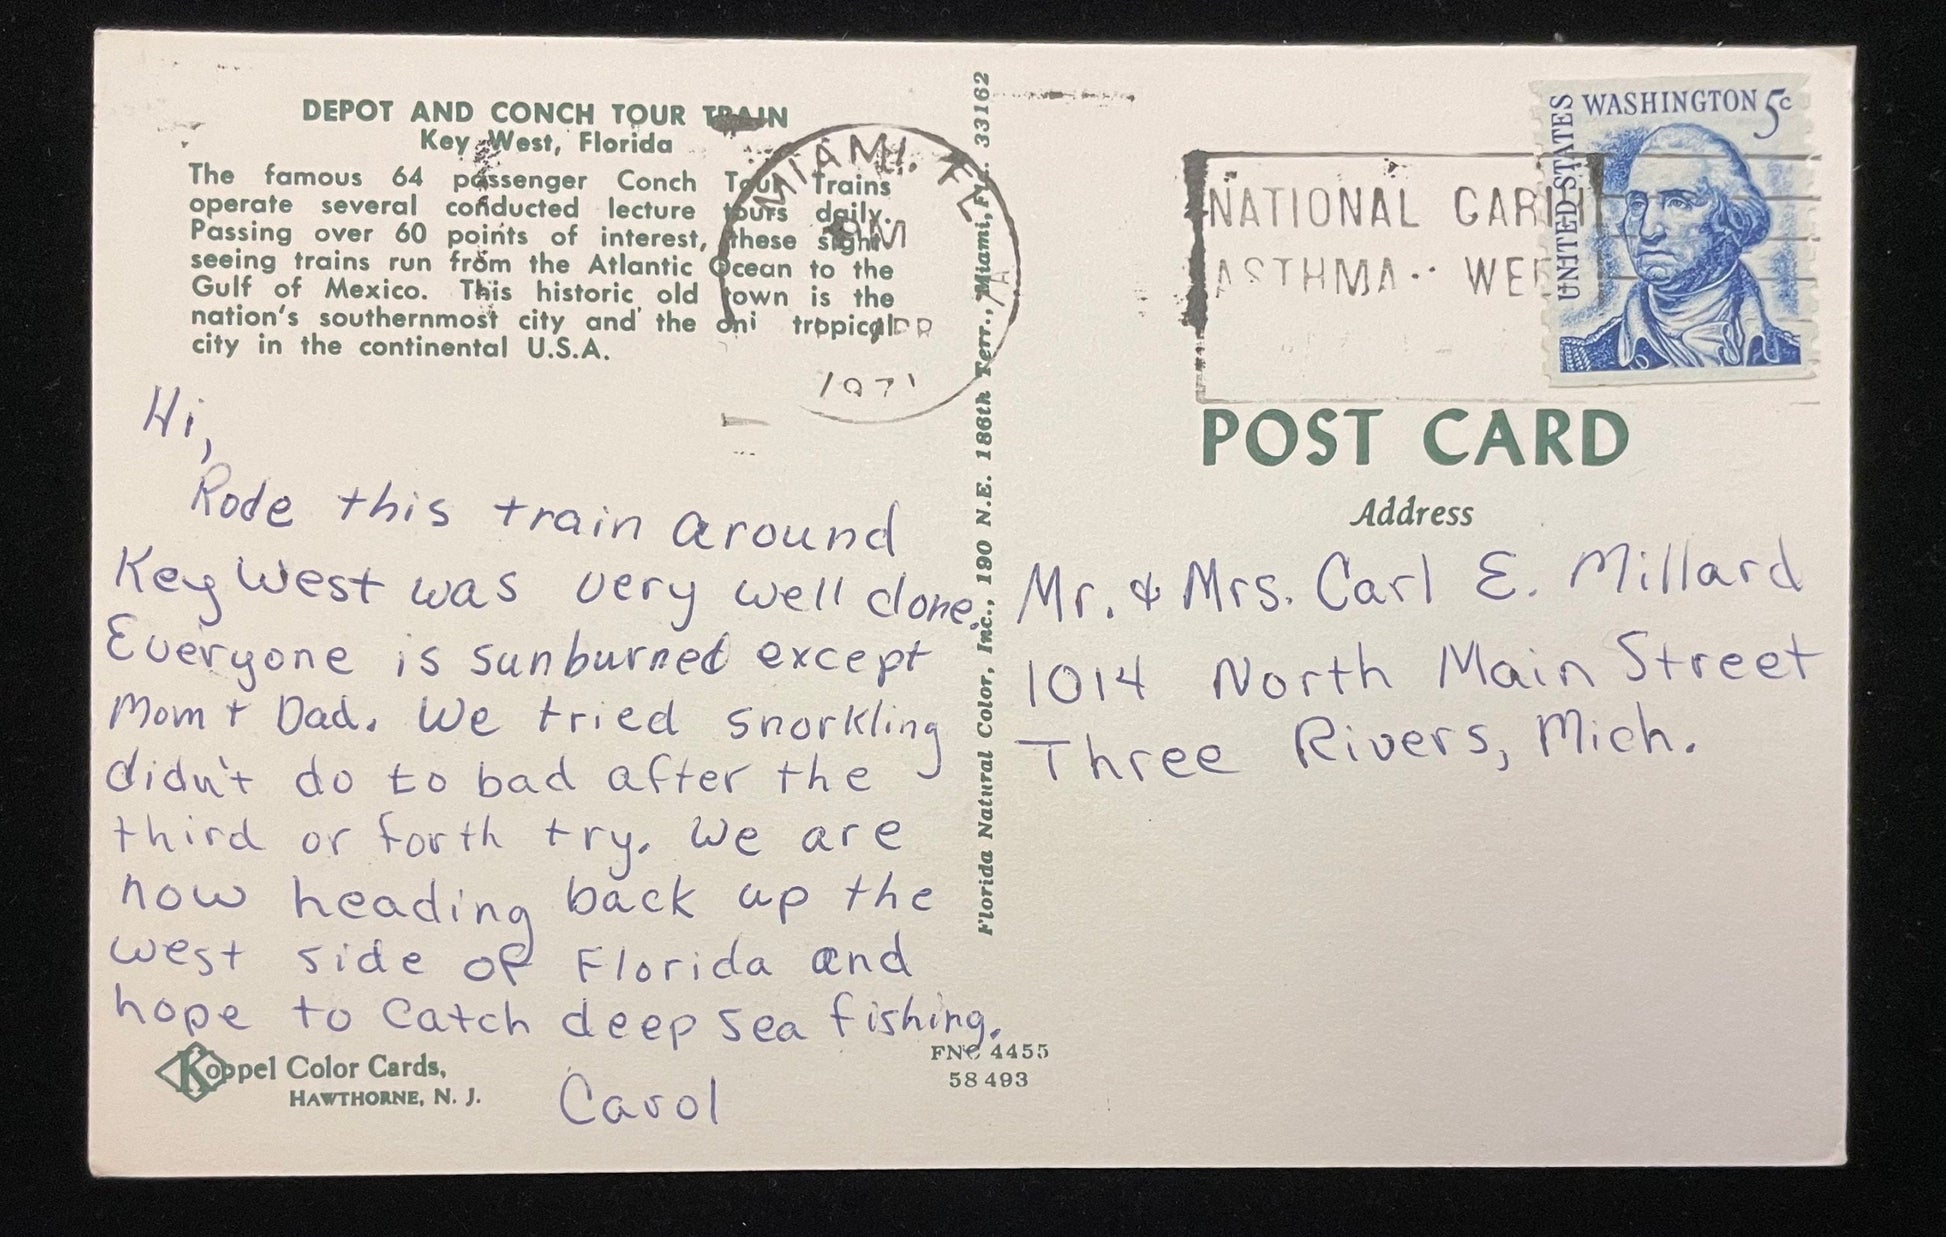 DEPOT AND CONCH TOUR TRAIN
Key West, Florida
The famous 64 passenger Conch Tour Trains
operate several conducted lecture tours daily.
Passing over 60 points of interest, these sight
seeing trains run from the Atlantic Ocean to the
Gulf of Mexico. This historic old town is the
nation's southernmost city and the oni tropical
city in the continental U.S.A.
MIAMI, FL
PM
1971
Hi,
Rode this train around
Key West was very well done.
Everyone is sunburned except
Mom + Dad. We tried snorkling
didn't do to bad after the
third or forth try. We are
now heading back up the
west side of Florida and
hope to catch deep sea fishing.
Carol
Koppel Color Cards,
HAWTHORNE, N. J.
FNC 4455
58493
Florida Natural Color, Inc., 190 N.E. 186th Terr., Miami, Fla. 33162
NATIONAL
ASTHMA
UNITED STATES
WASHINGTON 5c
POST CARD
Address
Mr. & Mrs. Carl E. Millard
1014 North Main Street
Three Rivers, Mich.